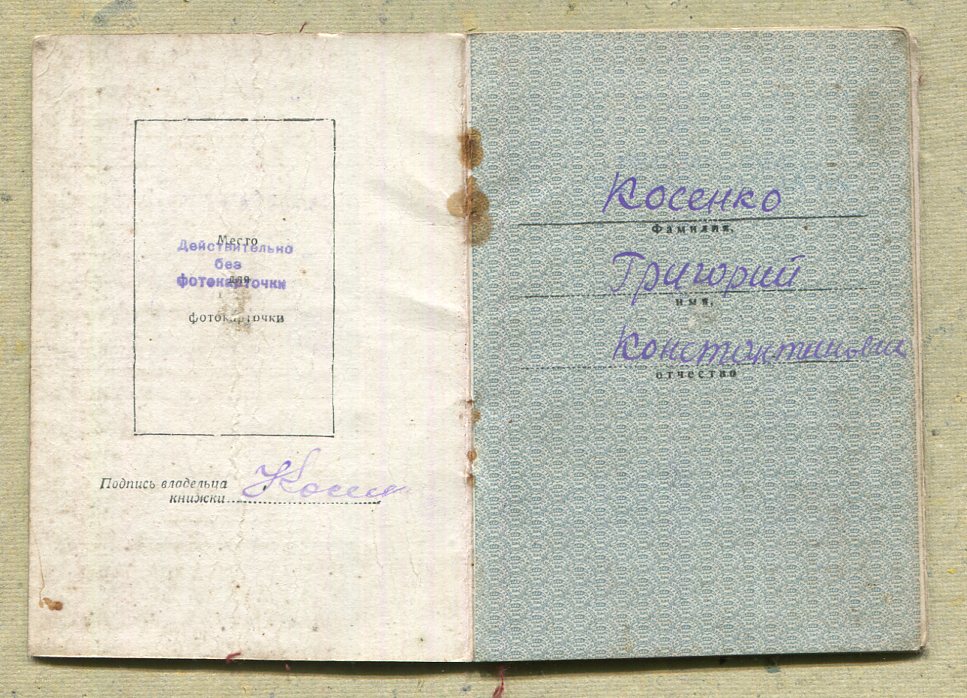 Место
Действительно
без
для
фотокарточки
фотокарточки
Подпись владельца
книжки
Косен
Косенко
Фамилия,
Григорий
имя,
Константинович
отчество